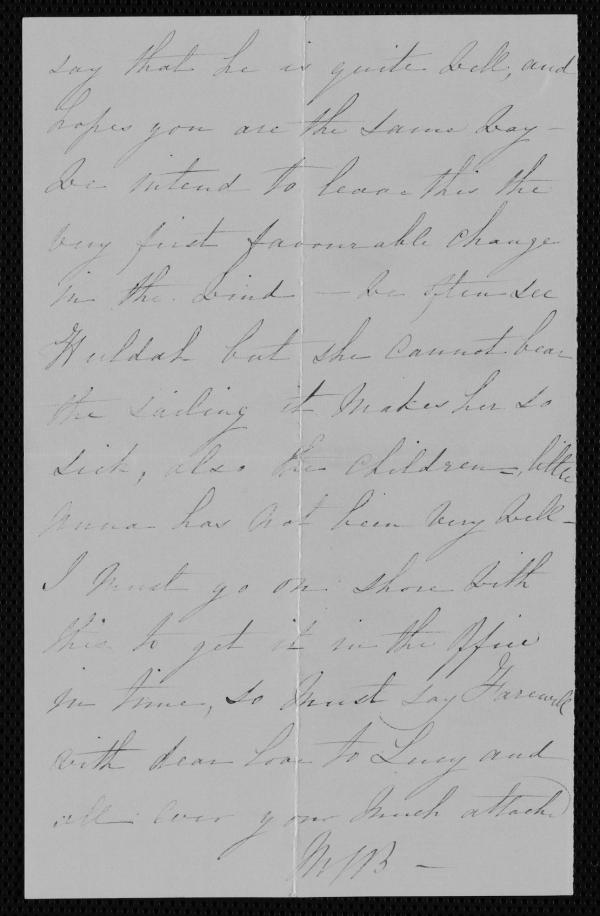 say that he is quite well, and
hopes you are the same way -
We intend to leave this the
very first favourable change
in the wind - We often see
Huldah but she cannot bear
the sailing it makes her so
sick, also the children - little
Anna has not been very well -
I must go on shore with
this to get it in the Office
in time, so must say Farewell
with dear love to Lucy and
all ever your much attach
MJB -